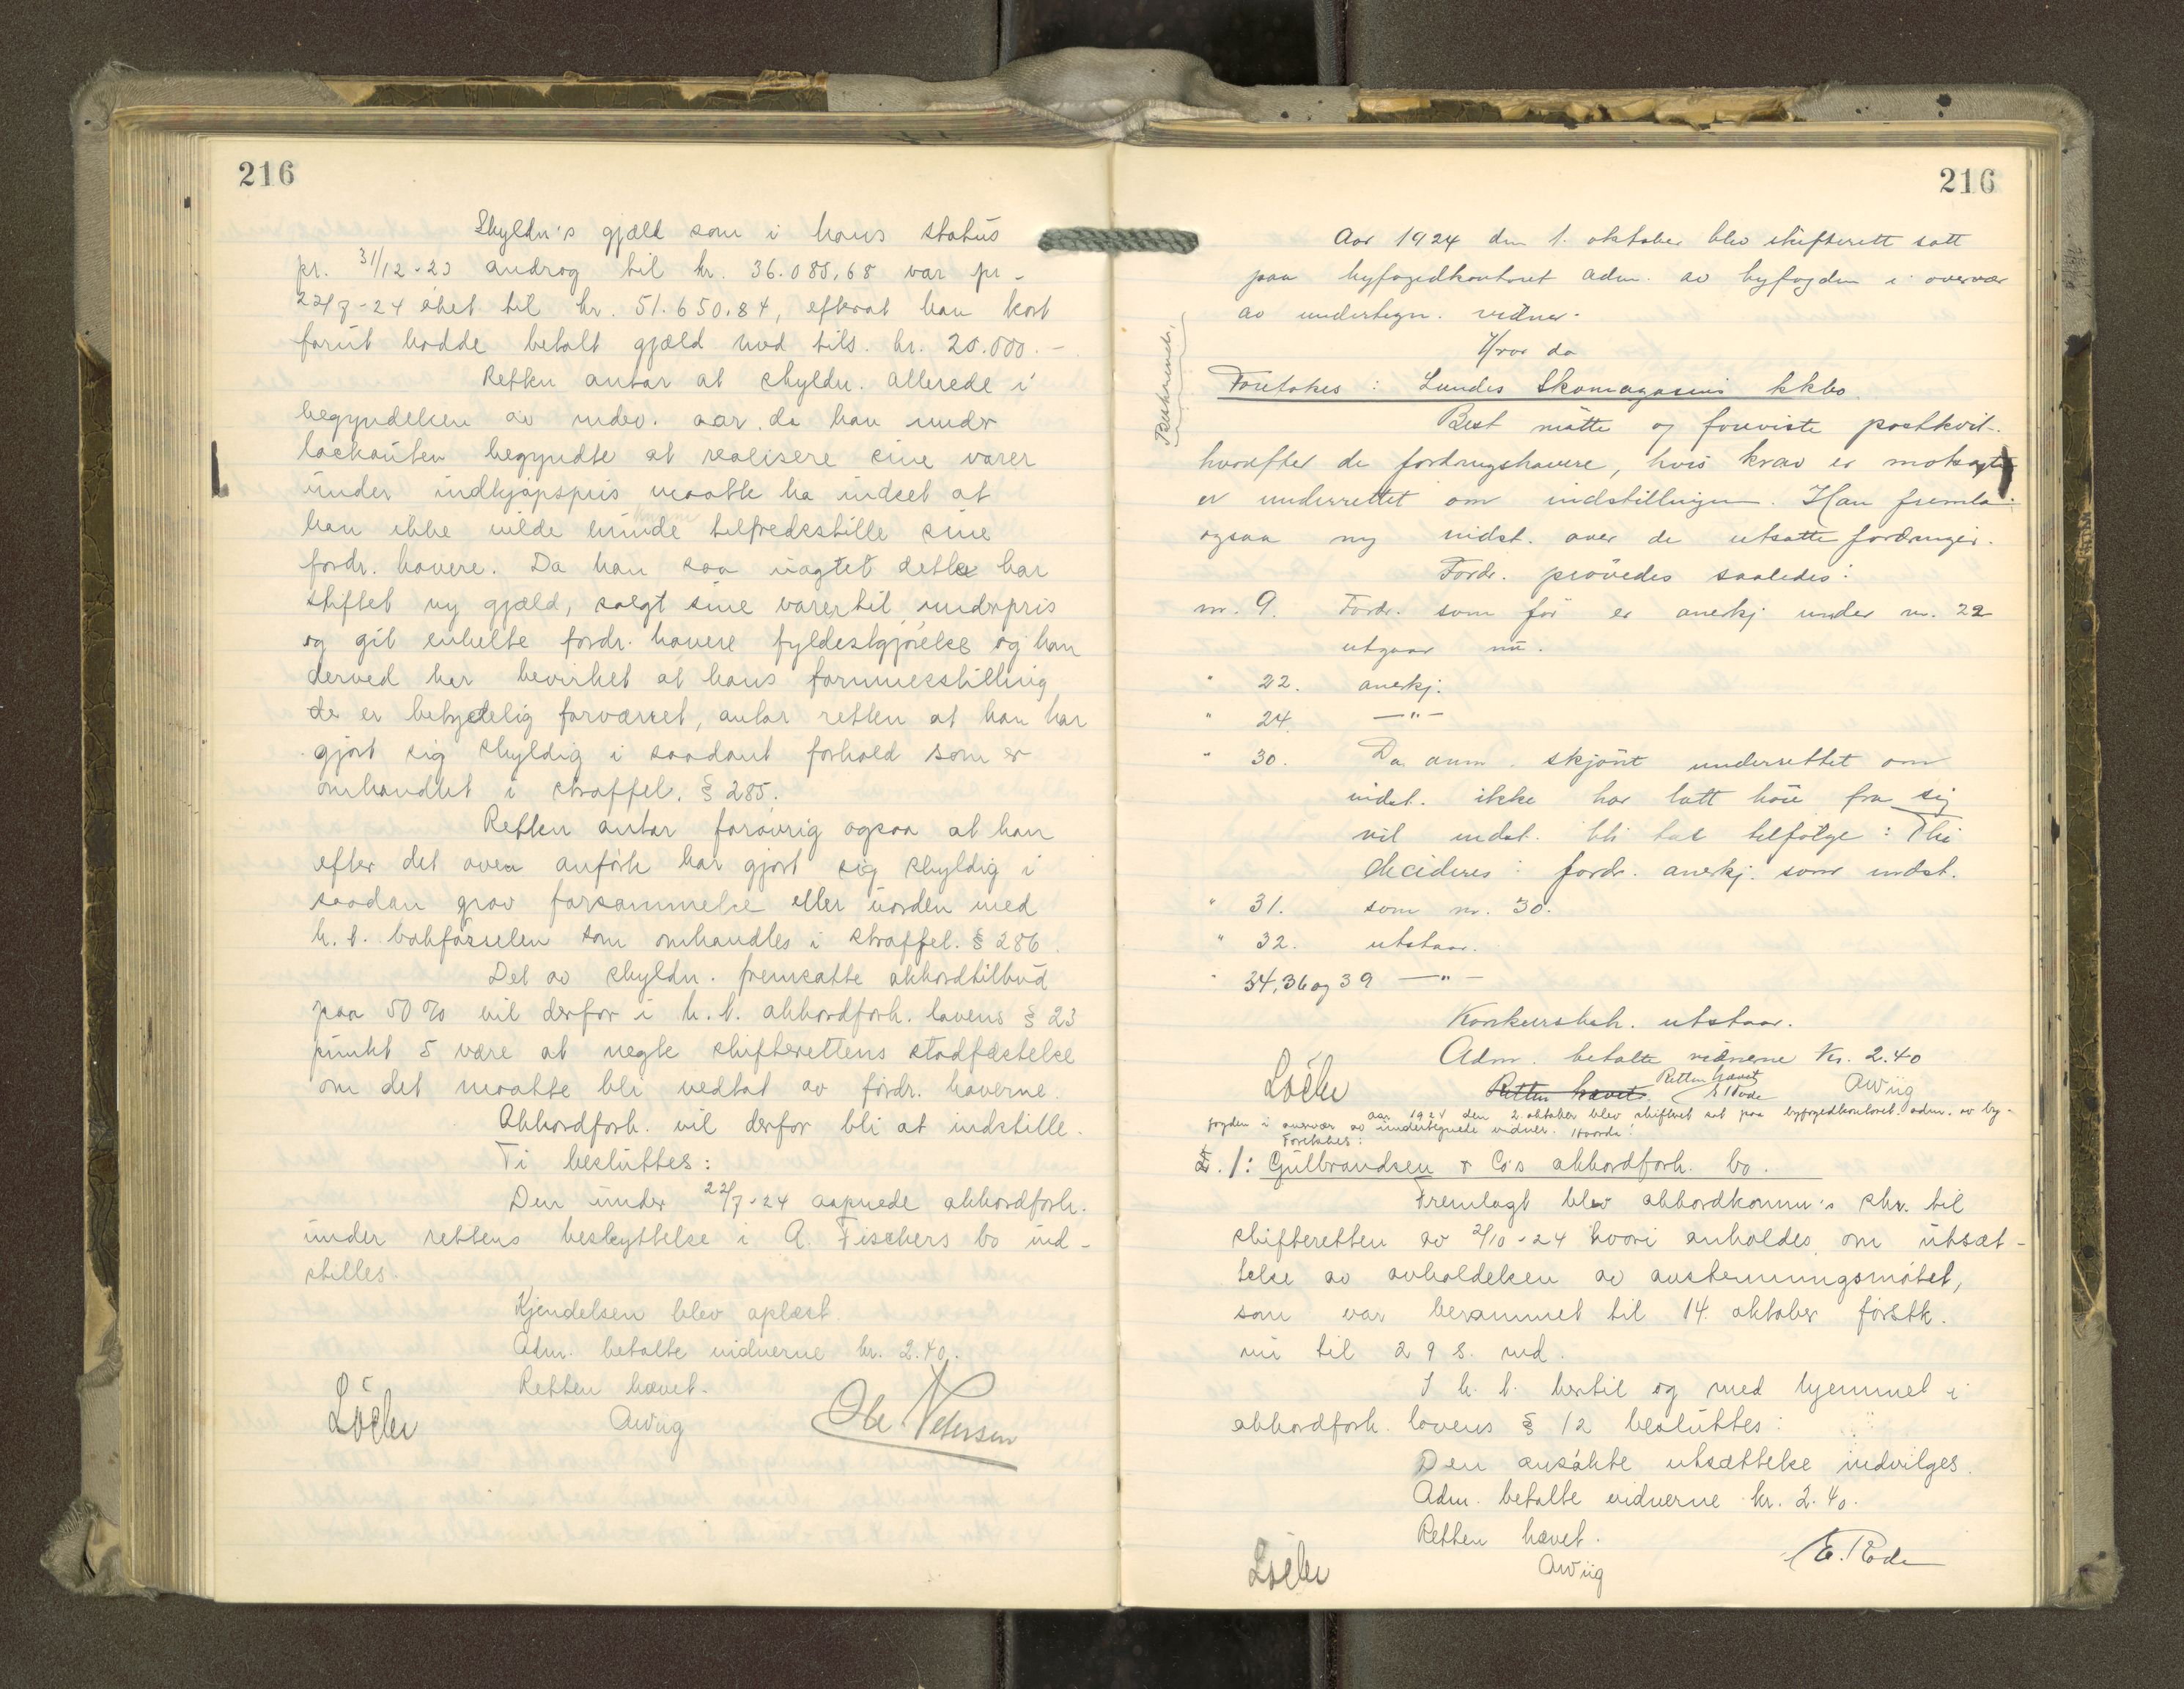 216
Skyldn's gjæld som i hans status
pr. 31/12-23 androg til kr. 36.085,68 var pr.
22/7-24 øket til kr. 51.650.84, efterat han kort
forut hadde betalt gjæld med tils. kr. 20.000.-
Retten antar at skyldn. allerede i
begyndelsen av indev. aar, da han under
lockouten begyndte at realisere sine varer
under indkjøpspris maatte ha indset at
han ikke vilde kunde tilfredsstille sine
fordr. havere. Da han saa uagtet dette har
stiftet ny gjæld, solgt sine varer til underpris
og git enkelte fordr. havere fyldestgjørelse og han
derved har bevirket at hans formuesstilling
de er betydelig forværret, antar retten at han har
gjort sig skyldig i saadant forhold som er
omhandlet i straffel. § 285.
Retten antar forøvrig ogsaa at han
efter det oven anførte har gjort sig skyldig i
saadan grov forsømmelse eller uorden med
h. t. bokførselen som omhandles i straffel. § 286.
Det av skyldn. fremsatte akkordtilbud
paa 50 % vil derfor i h. t. akkordforh. lovens § 23
punkt 5 være at negte skifterettens stadfæstelse
om det maatte bli vedtat av fordr. haverne.
Akkordforh. vil derfor bli at indstille.
Ti besluttes:
Den under 22/7-24 aapnede akkordforh.
under rettens beskyttelse i A. Fischers bo ind-
stilles.
Kjendelsen blev oplæst.
Adm. betalte vidnerne kr. 2.40.
Retten hævet.
AWiig
Ole Petersen
216
Aar 1924 den 1. oktober blev skifterett satt
paa byfogedkontoret adm. av byfogden i overvær
av undertegn. vidner.
Hvor da
Foretokes: Lundes Skomagasins kkbo.
Best møtte og foreviste postkvit.
hvorefter de fordringshavere, hvis krav er motsagt
er underrettet om indstillingen. Han fremla
ogsaa ny indst. over de utsatte fordringer.
Fordr. prøvedes saaledes:
nr. 9. Fordr. som før er anerkj. under nr. 22
utgaar nu.
" 22. anerkj.
" 24. —"—
" 30. Da anm. skjønt underrettet om
indst. ikke har latt høre fra sig
vil indst. bli tat tilfølge: Thi
decideres: fordr. anerkj. som indst.
" 31. som nr. 30.
" 32. utstaar.
" 34, 36 og 39 —"—
Konkursbeh. utstaar.
Adm. betalte vidnene Kr. 2.40
Retten hævet. Retten hævet
AWiig
Aar 1924 den 2. oktober blev skifteret sat paa byfogedkontoret adm. av by-
fogden i overvær av undertegnede vidner. Hvorda:
Foretokes:
1: Gulbrandsen & Co's akkordforh. bo.
Fremlagt blev akkordkomm's skr. til
skifteretten av 2/10-24 hvori anholdes om utsæt-
telse av avholdelsen av avstemningsmøtet,
som var berammet til 14. oktober førstk.
nu til 29 s. md.
I h. t. hertil og med hjemmel i
akkordforh. lovens § 12 besluttes:
Den ansøkte utsættelse indvilges.
Adm. betalte vidnerne kr. 2.40.
Retten hævet.
AWiig
E. Rode